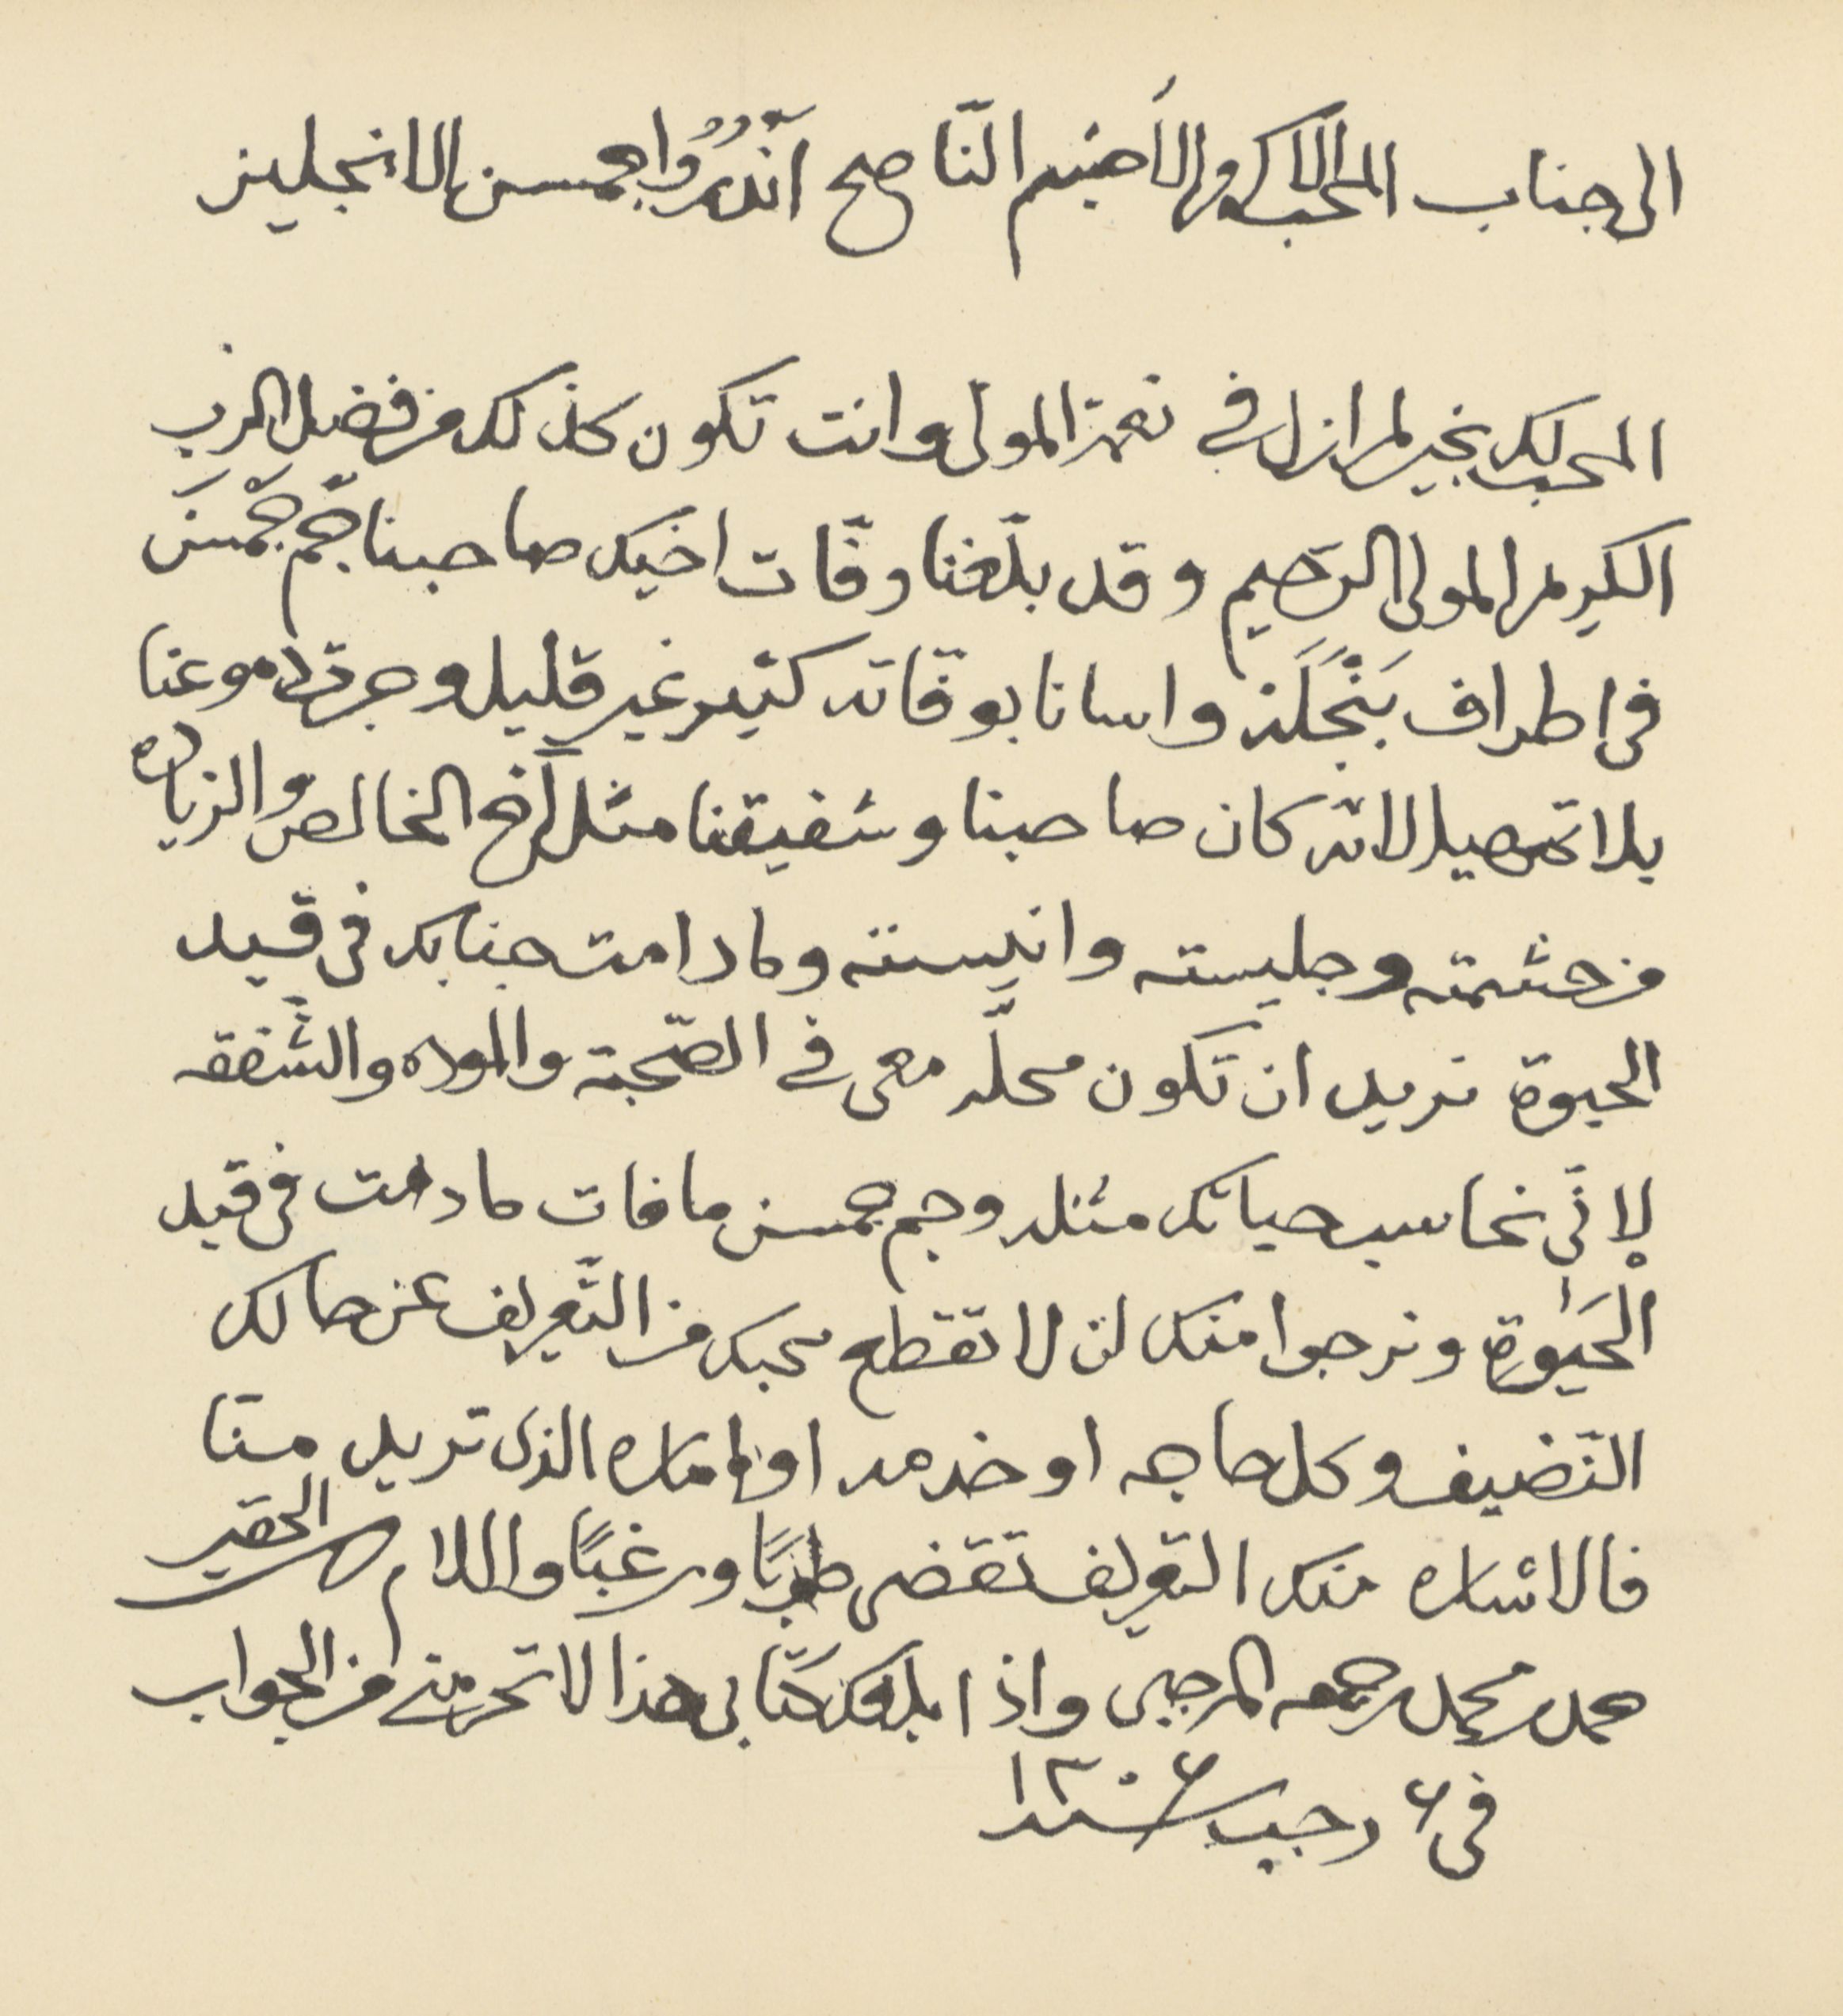 الى جناب المحب الاكرم الأحشم النّاصح اَنْدْرُوا جمسن الانجليز
المحب لك بخير لم ازل في نعمة المولى وانت تكون كذلك من فضل الرب
الكريم المولى الرّحيم وقد بلّغنا وفّات اخيك صاحبنا جَم جِمْسَن
في اطراف بَنْجَلَز واسانا بوفّاته كثير غير قليل وجرت دموعنا
بلا تمهيل لانّه كان صاحبنا وشفيقنا مثل الَأخ الخالص والزياده
من حشمته وجليسته وانيسته ومادامت جنابك في قيد
الحيوة نريد ان تكون محلّه معي في الصّحبة والموده والشّفقه
لإنّي نحاسب حياتك مثله وجم جمسن ما فات مادامت في قيد
الحَيٰوة ونرجوا منك ان لا تقطع محبك من التّعريف عن حالك
النّضيف وكل حاجه او خدمه او اماره الذى تريد منّا
فالاشاره منك التعريف تقضى طربًا ورغبًا والسلام من الحقير
حمد محمد جمعه المرجبى واذا بلغك كتابي هذا لا تحرمني من الجواب
في ٦ رجب سنة ١٣٠٦